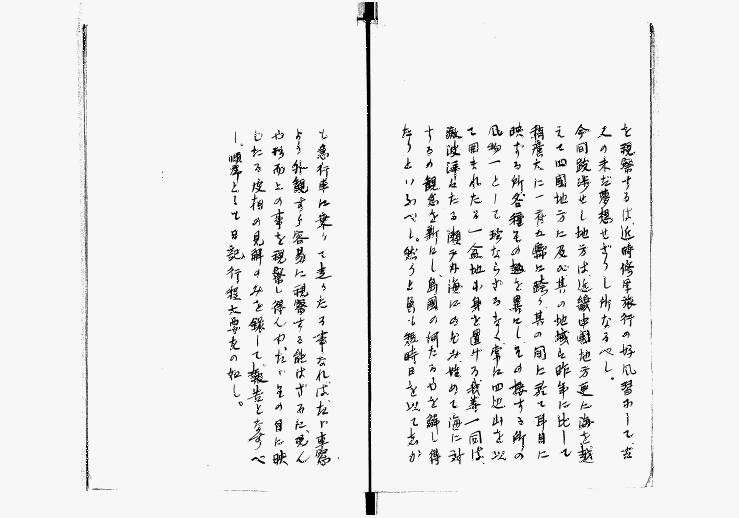 を視察するは、近時修学旅行の好風習にして、古
人の未だ夢想せざりし所なるべし。
今回跋渉せし地方は、近畿中国地方更に海を越
えて四国地方に及び其の地域を昨年に比して
稍広大に一府五県に跨り其の間に於て耳目に
映ずる所各種その趣を異にしその接する所の
風物一として珍ならざるなく常に四辺山を以
て囲まれたる一盆地に身を置ける我等一同は、
激波渺茫たる瀬戸内海にのぞみ始めて海に対
するの観念を新にし、島国の何たるやを解し得
たりといふべし。然りと雖も短時日を以て走
も急行車に乗りて走りたる事なれば、ただ車窓
より外観すら容易に視察する能はざるに、況ん
や形而上の事を視察し得んや、ただその目に映
じたる皮相の見解のみを録して報告となすべ
し。順序として日記行程大要左の如し。